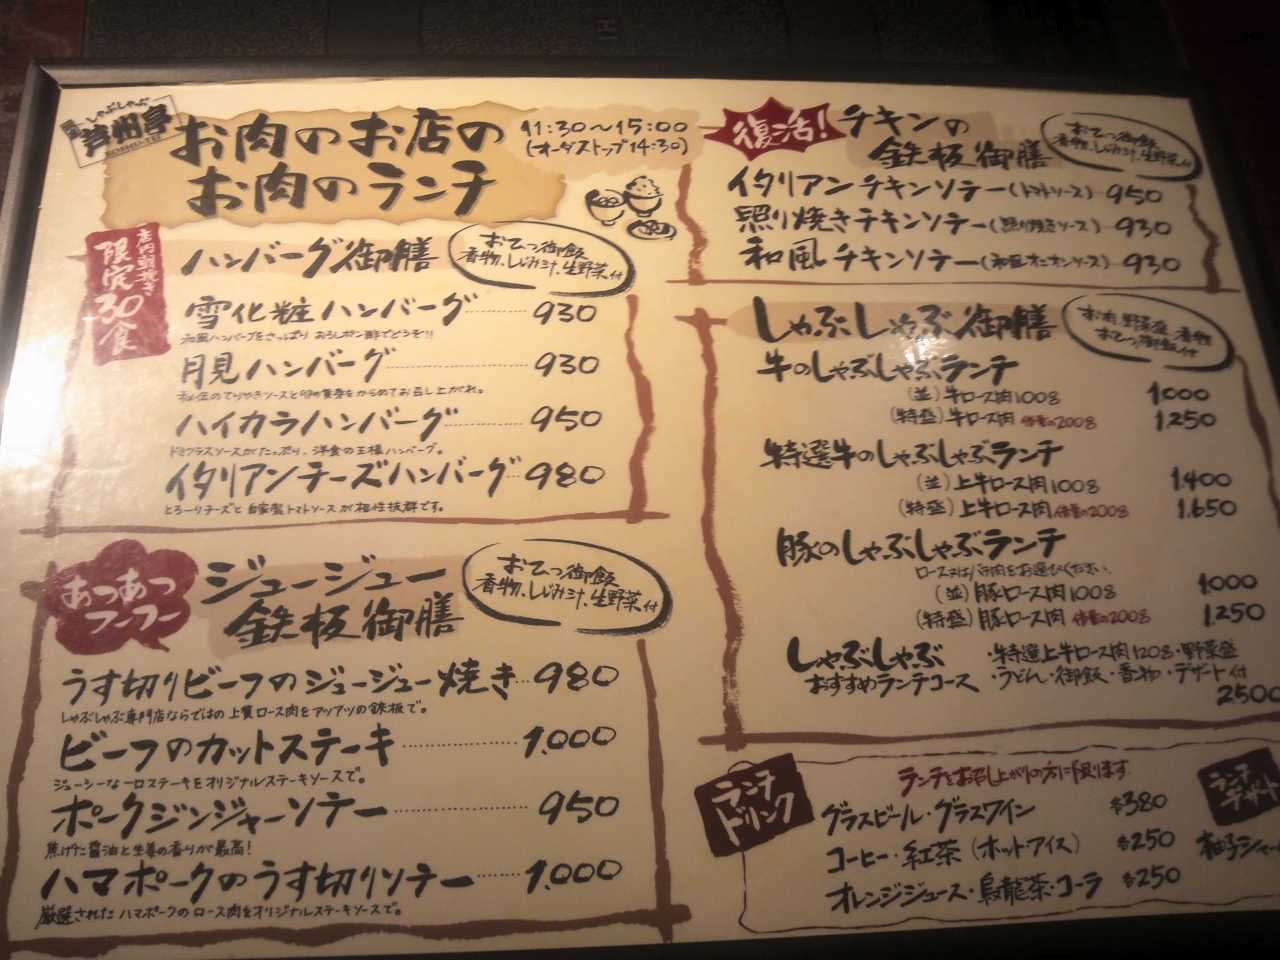 しゃぶしゃぶ
お肉のお店の
お肉のランチ
11:30～15:00
(オーダストップ14:30)
店内朝挽き
限定30食
ハンバーグ御膳
おひつ御飯
香物、しじみ汁、生野菜付
雪化粧ハンバーグ 930
和風ハンバーグをさっぱり おろしポン酢でどうぞ!!
月見ハンバーグ 930
秘伝のてりやきソースと卵の黄身をからめてお召し上がれ。
ハイカラハンバーグ 950
ドミグラスソースがたっぷり、洋食の王様ハンバーグ。
イタリアンチーズハンバーグ 980
とろーりチーズと自家製トマトソースが相性抜群です。
あつあつ
フーフー
ジュージュー
鉄板御膳
おひつ御飯
香物、しじみ汁、生野菜付
うす切りビーフのジュージュー焼き 980
しゃぶしゃぶ専門店ならではの上質ロース肉をアツアツの鉄板で。
ビーフのカットステーキ 1.000
ジューシーな一口ステーキをオリジナルステーキソースで。
ポークジンジャーソテー 950
焦げた醤油と生姜の香りが最高!
ハマポークのうす切りソテー 1.000
厳選されたハマポークのロース肉をオリジナルステーキソースで。
復活!
チキンの
鉄板御膳
おひつ御飯
香物、しじみ汁、生野菜付
イタリアンチキンソテー(トマトソース) 950
照り焼きチキンソテー(照り焼きソース) 930
和風チキンソテー(和風オニオンソース) 930
しゃぶしゃぶ御膳
お肉、野菜盛、香物
おひつ御飯付
牛のしゃぶしゃぶランチ
(並)牛ロース肉100g 1.000
(特盛)牛ロース肉 倍量の200g 1.250
特選牛のしゃぶしゃぶランチ
(並)上牛ロース肉100g 1.400
(特盛)上牛ロース肉 倍量の200g 1.650
豚のしゃぶしゃぶランチ
ロース又はバラ肉をお選びください。
(並)豚ロース肉100g 1.000
(特盛)豚ロース肉 倍量の200g 1.250
しゃぶしゃぶ
おすすめランチコース
・特選上牛ロース肉120g・野菜盛
・うどん・御飯・香物・デザート付
2500
ランチ
ドリンク
ランチをお召し上がりの方に限ります
グラスビール・グラスワイン 各380
コーヒー・紅茶(ホット・アイス) 各250
オレンジジュース・烏龍茶・コーラ 各250
ランチ
デザート
柚子シャー